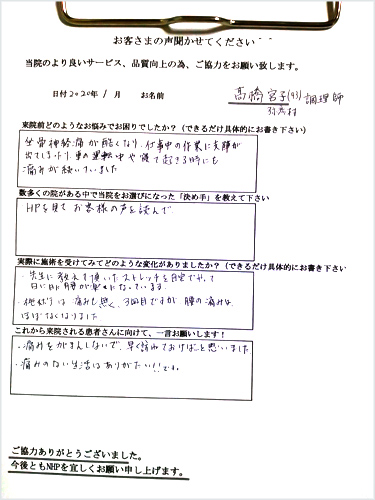 お客さまの声聞かせてください
当院のより良いサービス、品質向上の為、ご協力をお願い致します。
日付2020年 1月 お名前 高橋宮子(43) 調理師
弥彦村
来院前どのようなお悩みでお困りでしたか？（できるだけ具体的にお書き下さい）
坐骨神経痛が酷くなり、仕事中の作業に支障が
出ていました。車の運転中や寝て起きる時にも
痛みが続いていました
数多くの院がある中で当院をお選びになった「決め手」を教えて下さい
HPを見て お客様の声を読んで
実際に施術を受けてみてどのような変化がありましたか？（できるだけ具体的にお書き下
・先生に教えて頂いたストレッチを自宅でやって
日に日に腰が楽になっています。
は痛みも無く、3回目ですが 腰の痛みは、
ほぼなくなりました
これから来院される患者さんに向けて、一言お願いします！
・痛みをがまんしないで、早く訪れておけばと思いました
・痛みのない生活はありがたい!!です。
ご協力ありがとうございました。
今後ともNHPを宜しくお願い申し上げます。